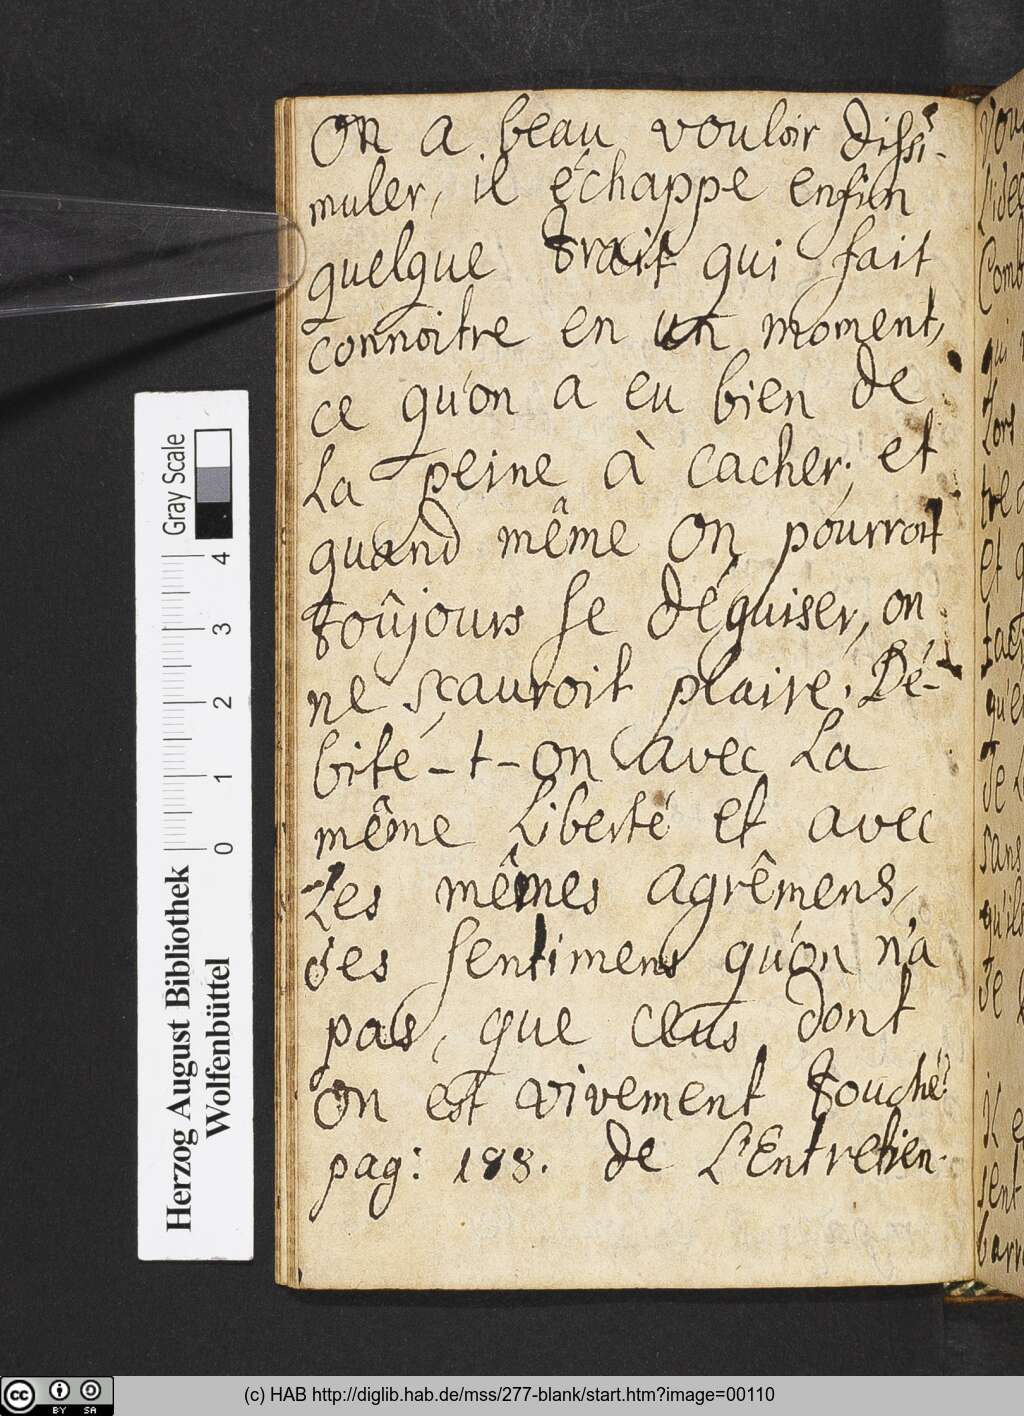 On a beau vouloir dissi-
muler, il échappe enfin
quelque trait qui fait
connoitre en un moment,
ce qu'on a eu bien de
La peine à cacher; et
quand même on pourroit
toûjours se déguiser, on
ne sçauroit plaire. Dé-
bite-t-on avec La
même Liberté et avec
Les mêmes agrêmens,
des sentimens qu'on n'a
pas, que ceus dont
on est vivement touché?
pag: 188. de L'Entretien.
Gray Scale
4 3 2 1 0
Herzog August Bibliothek
Wolfenbüttel
cc BY SA
(c) HAB http://diglib.hab.de/mss/277-blank/start.htm?image=00110